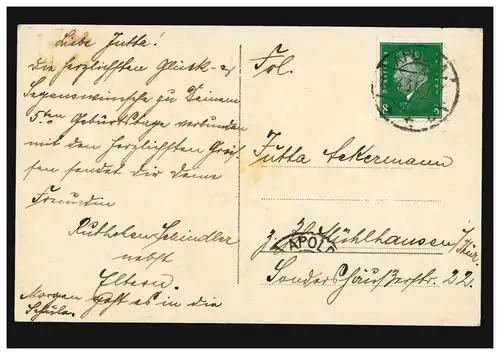 Liebe Jutta!
Die herzlichsten Glück- &
Segenswünsche zu Deinem
5ten Geburtstage verbunden
mit den herzlichsten Grüs-
sen sendet dir deine
Freundin
Ruthchen Schindler
nebst
Eltern.
Morgen geht es in die
Schule.
Frl.
Jutta Ackermann
z. Zt. Mühlhausen/Thür.
Sondershäuserstr. 22.
APOLD
8 8